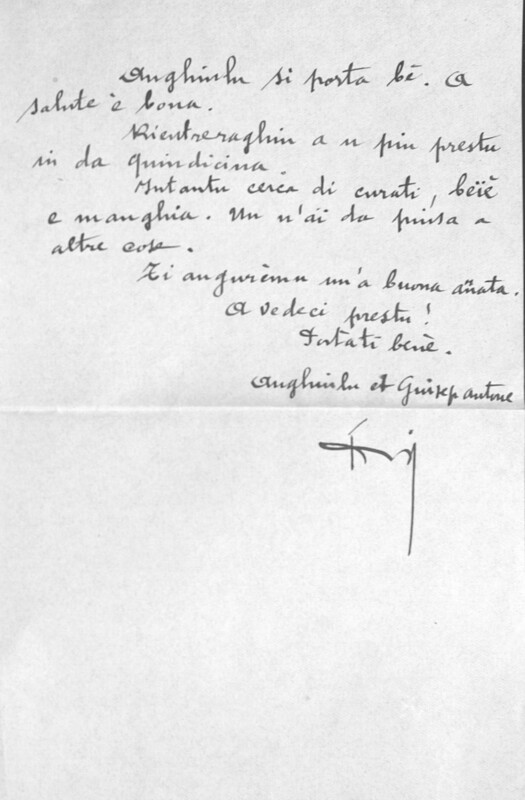 Anghiulu si porta bè. A
salute è bona.
Rientreraghiu a u piu prestu
in da quindicina.
Intantu cerca di curati, beïe
e manghia. Un n'äi da piusa a
altre cose.
Ti augurèmu un'a buona añata.
A vedeci prestu!
Portati benè.
Anghiulu et Guisep antone